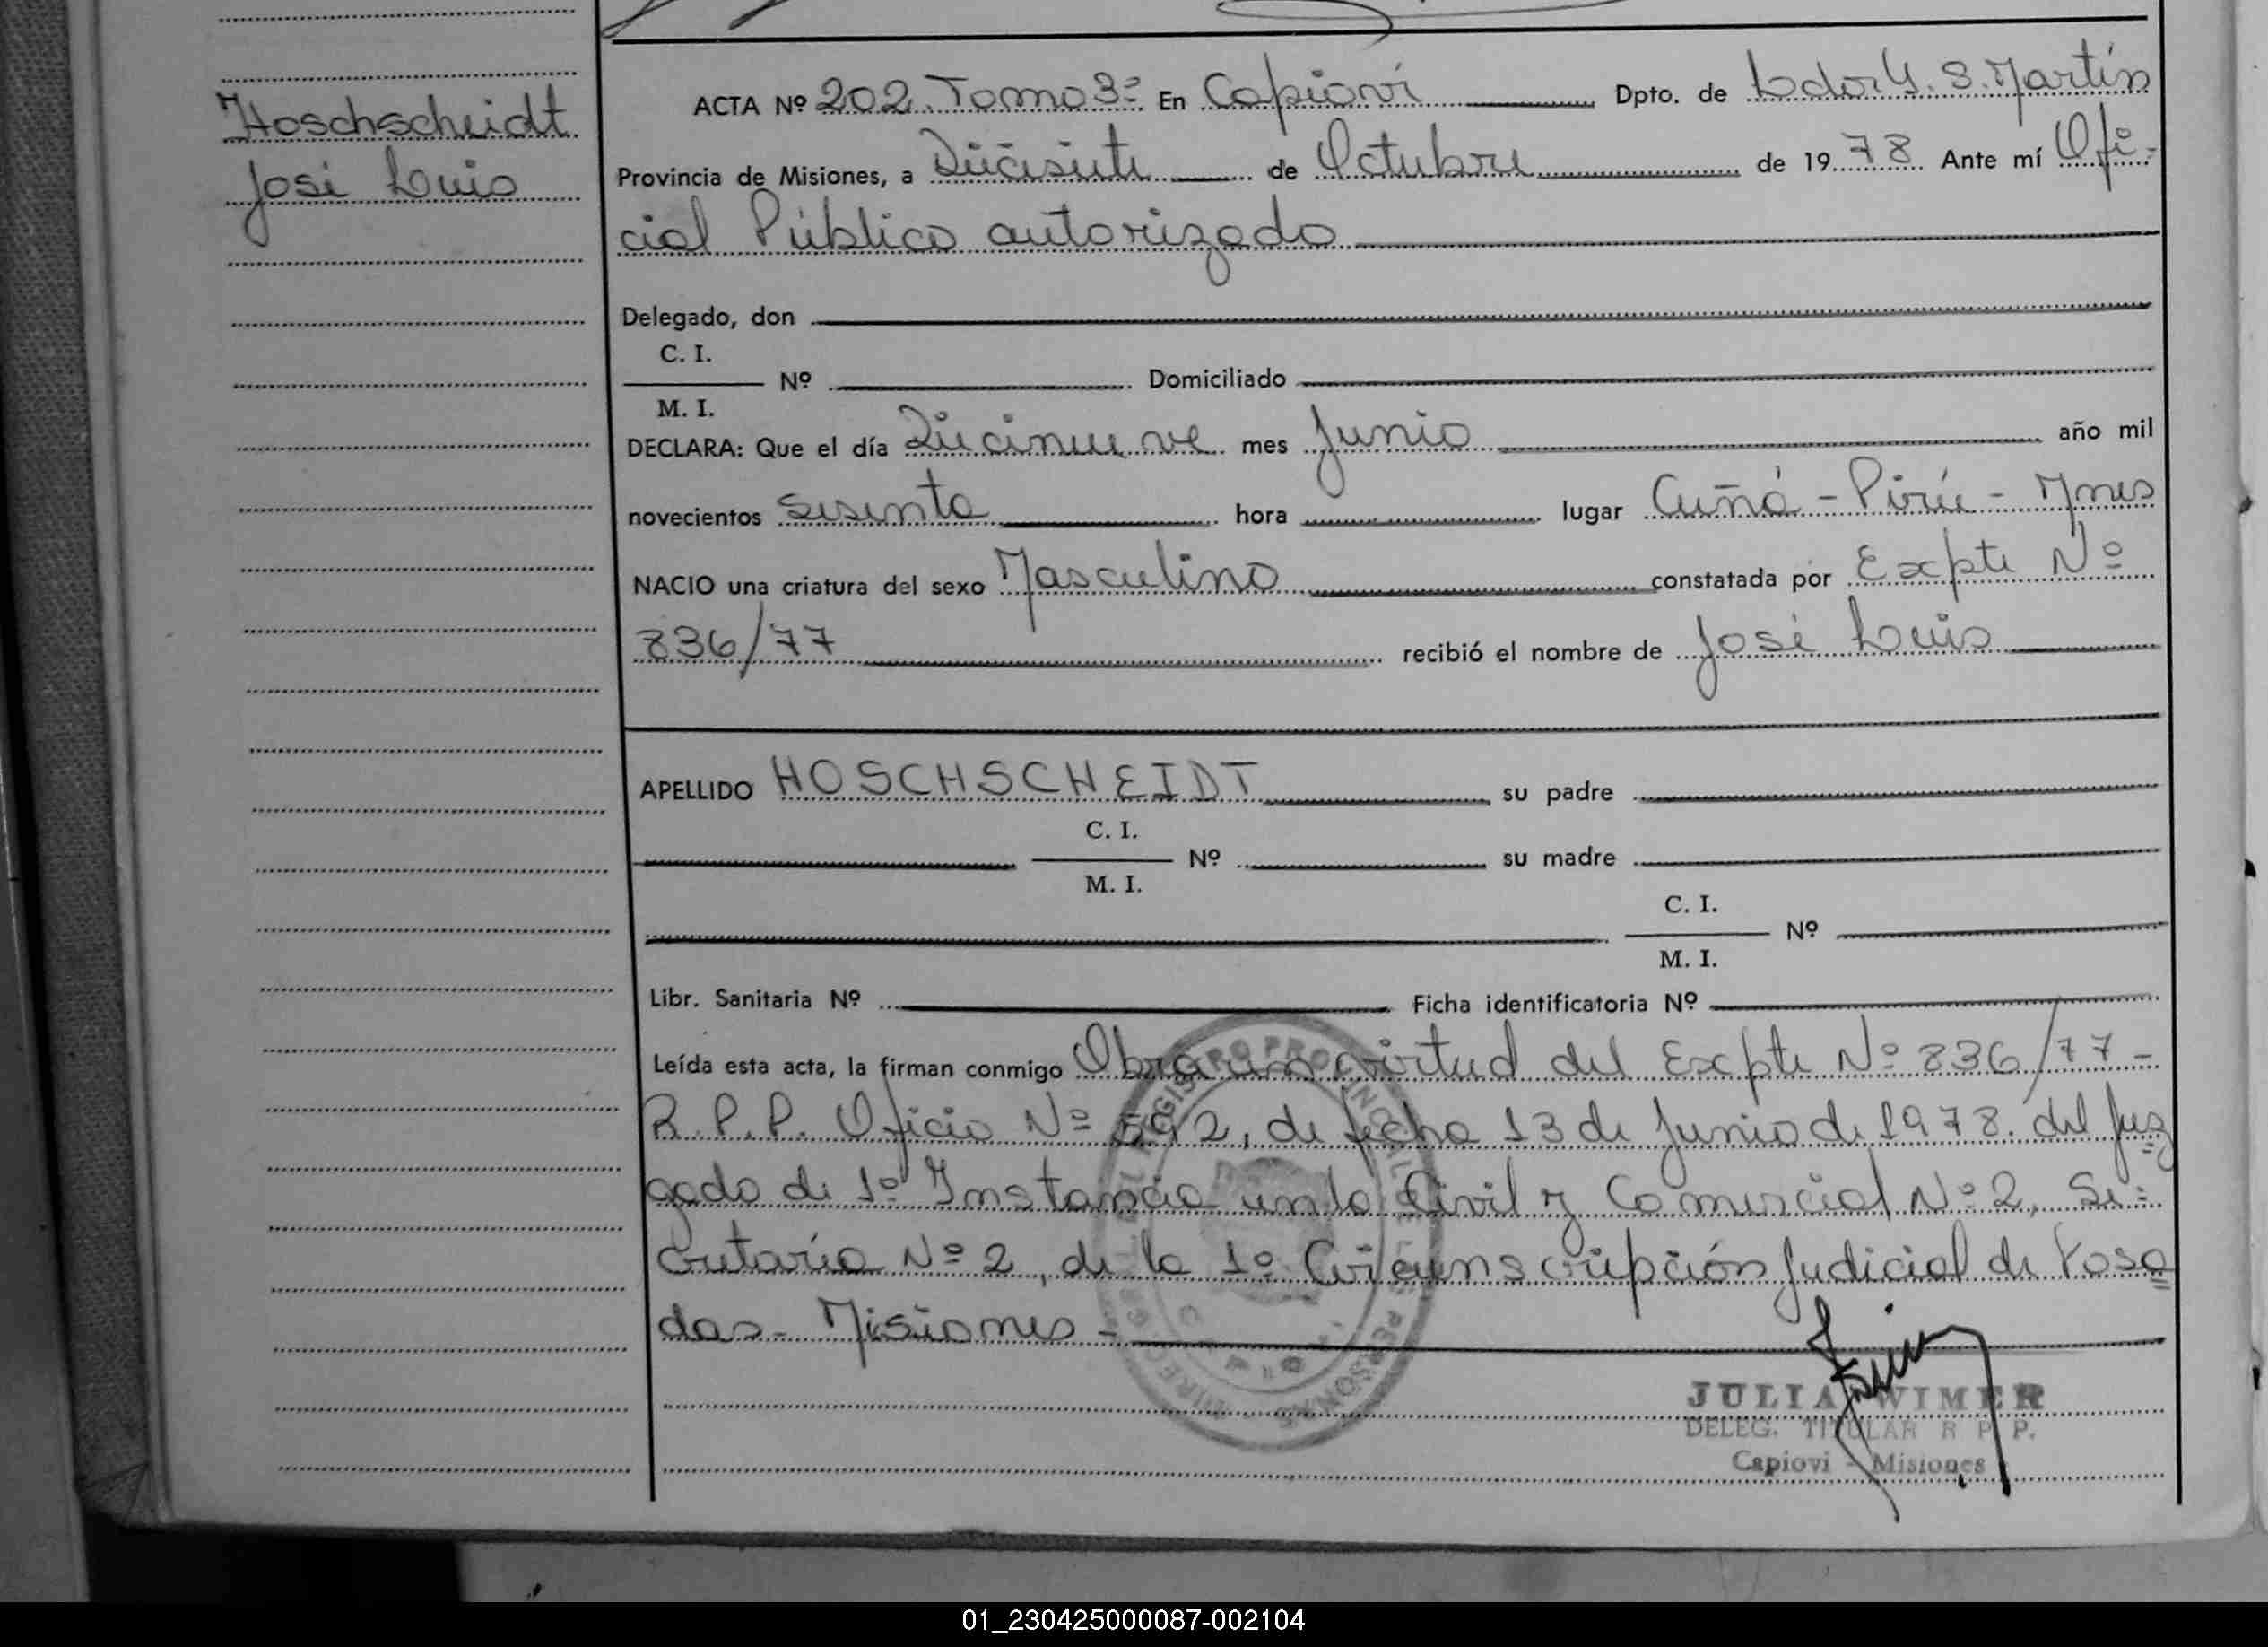 Hoschscheidt
José Luis
ACTA Nº 202. Tomo 3º En Capioví Dpto. de Ldor G. S. Martín
Provincia de Misiones, a Diecisiete de Octubre de 1978 Ante mí Ofi-
cial Público autorizado
Delegado, don
C. I.
Nº Domiciliado
M. I.
DECLARA: Que el día Diecinueve mes Junio año mil
novecientos sesenta hora lugar Cuñá-Pirú - Mnes
NACIO una criatura del sexo Masculino constatada por Expte Nº
836/77 recibió el nombre de José Luis
APELLIDO HOSCHSCHEIDT su padre
C. I.
Nº su madre
M. I.
C. I.
Nº
M. I.
Libr. Sanitaria Nº Ficha identificatoria Nº
Leída esta acta, la firman conmigo Obra en virtud del Expte Nº 836/77-
R.P.P. Oficio Nº 592, de fecha 13 de Junio de 1978. del Juz
gado de 1º Instancia en lo Civil y Comercial Nº 2, Se-
cretaría Nº 2, de la 1º Circunscripción Judicial de Posa
das - Misiones -
JULIA WIMER
DELEG. TITULAR R P P.
Capiovi - Misiones
01_230425000087-002104